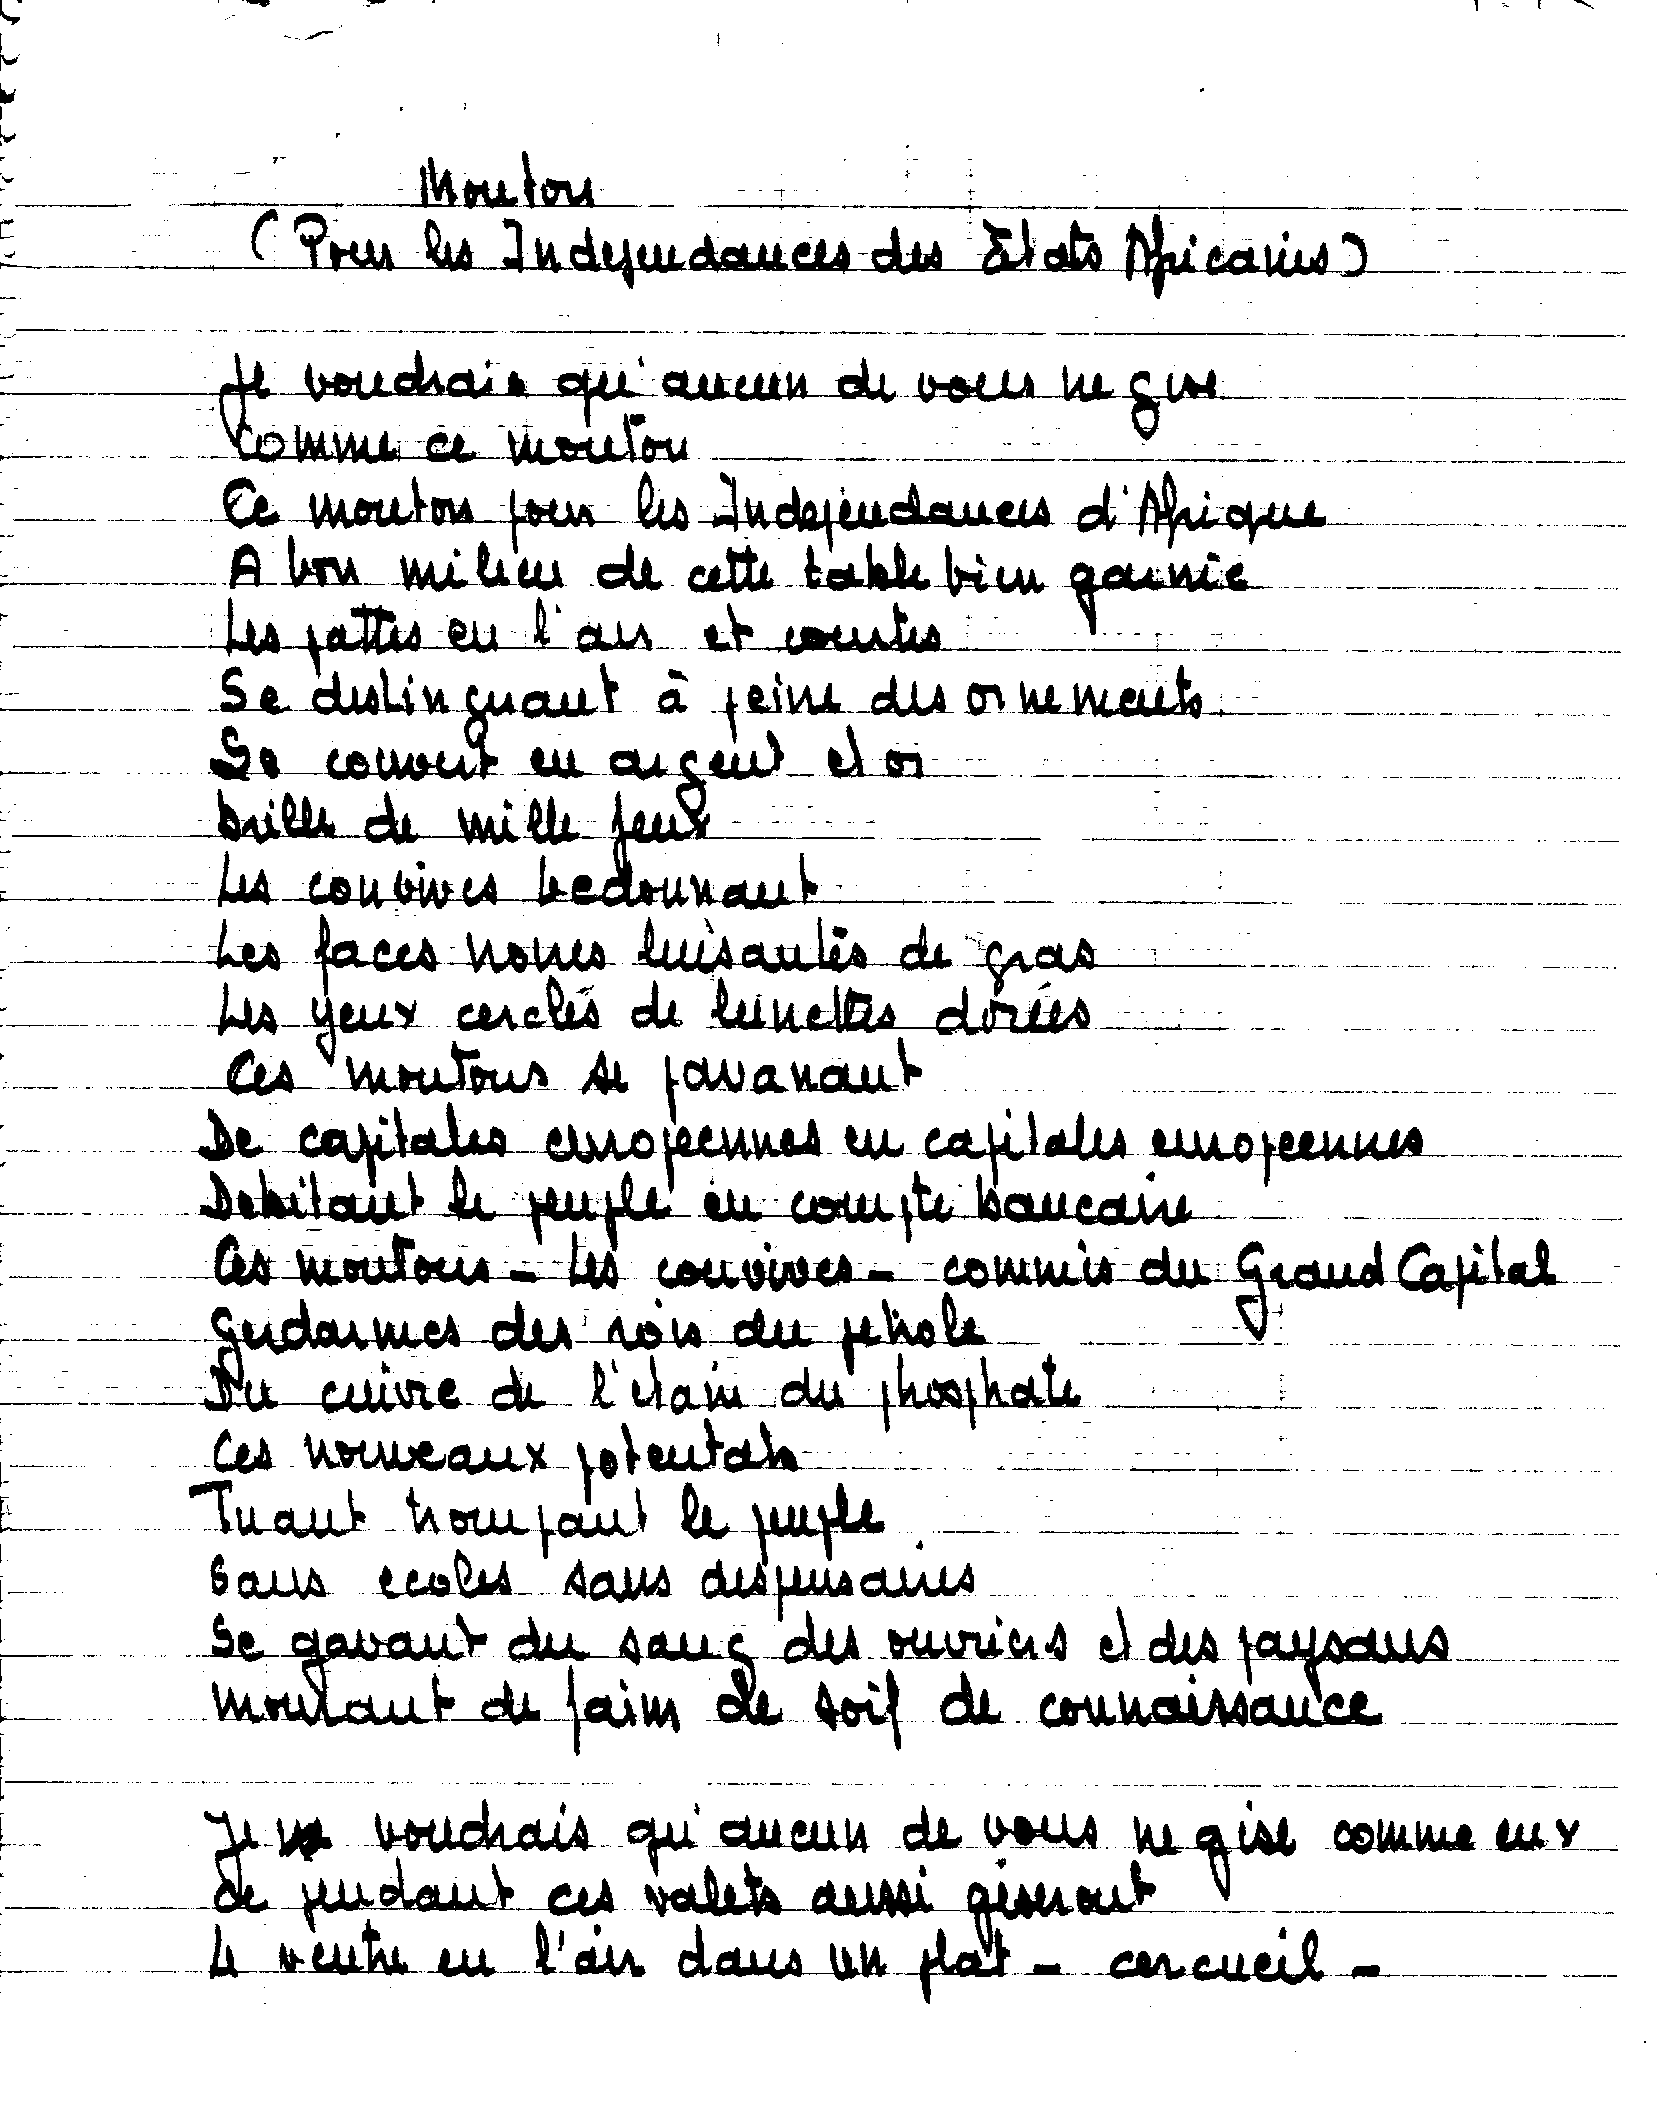 Mouton
(Pour les Independances des Etats Africains)
Je voudrais qu'aucun de vous ne gise
comme ce mouton
Ce mouton pour les Independances d'Afrique
A bon milieu de cette table bien garnie
Les pattes en l'air et courtes
Se distinguant à peine des ornements
Se couvert en argent et or
brille de mille feux
Les convives bedonnant
Les faces noires luisantes de gras
Les yeux cerclés de lunettes dorées
Ces moutons se pavanant
De capitales europeennes en capitales europeennes
Debitant le peuple en compte bancaire
Ces moutons - Les convives - commis du Grand Capital
Gendarmes des rois du petrole
Du cuivre de l'etain du phosphate
Ces nouveaux potentats
Tuant trompant le peuple
Sans ecoles sans dispensaires
Se gavant du sang des ouvriers et des paysans
Mourant de faim de soif de connaissance
Je voudrais qu'aucun de vous ne gise comme eux
De pendant ces valets aussi giseront
Le ventre en l'air dans un plat - cercueil -